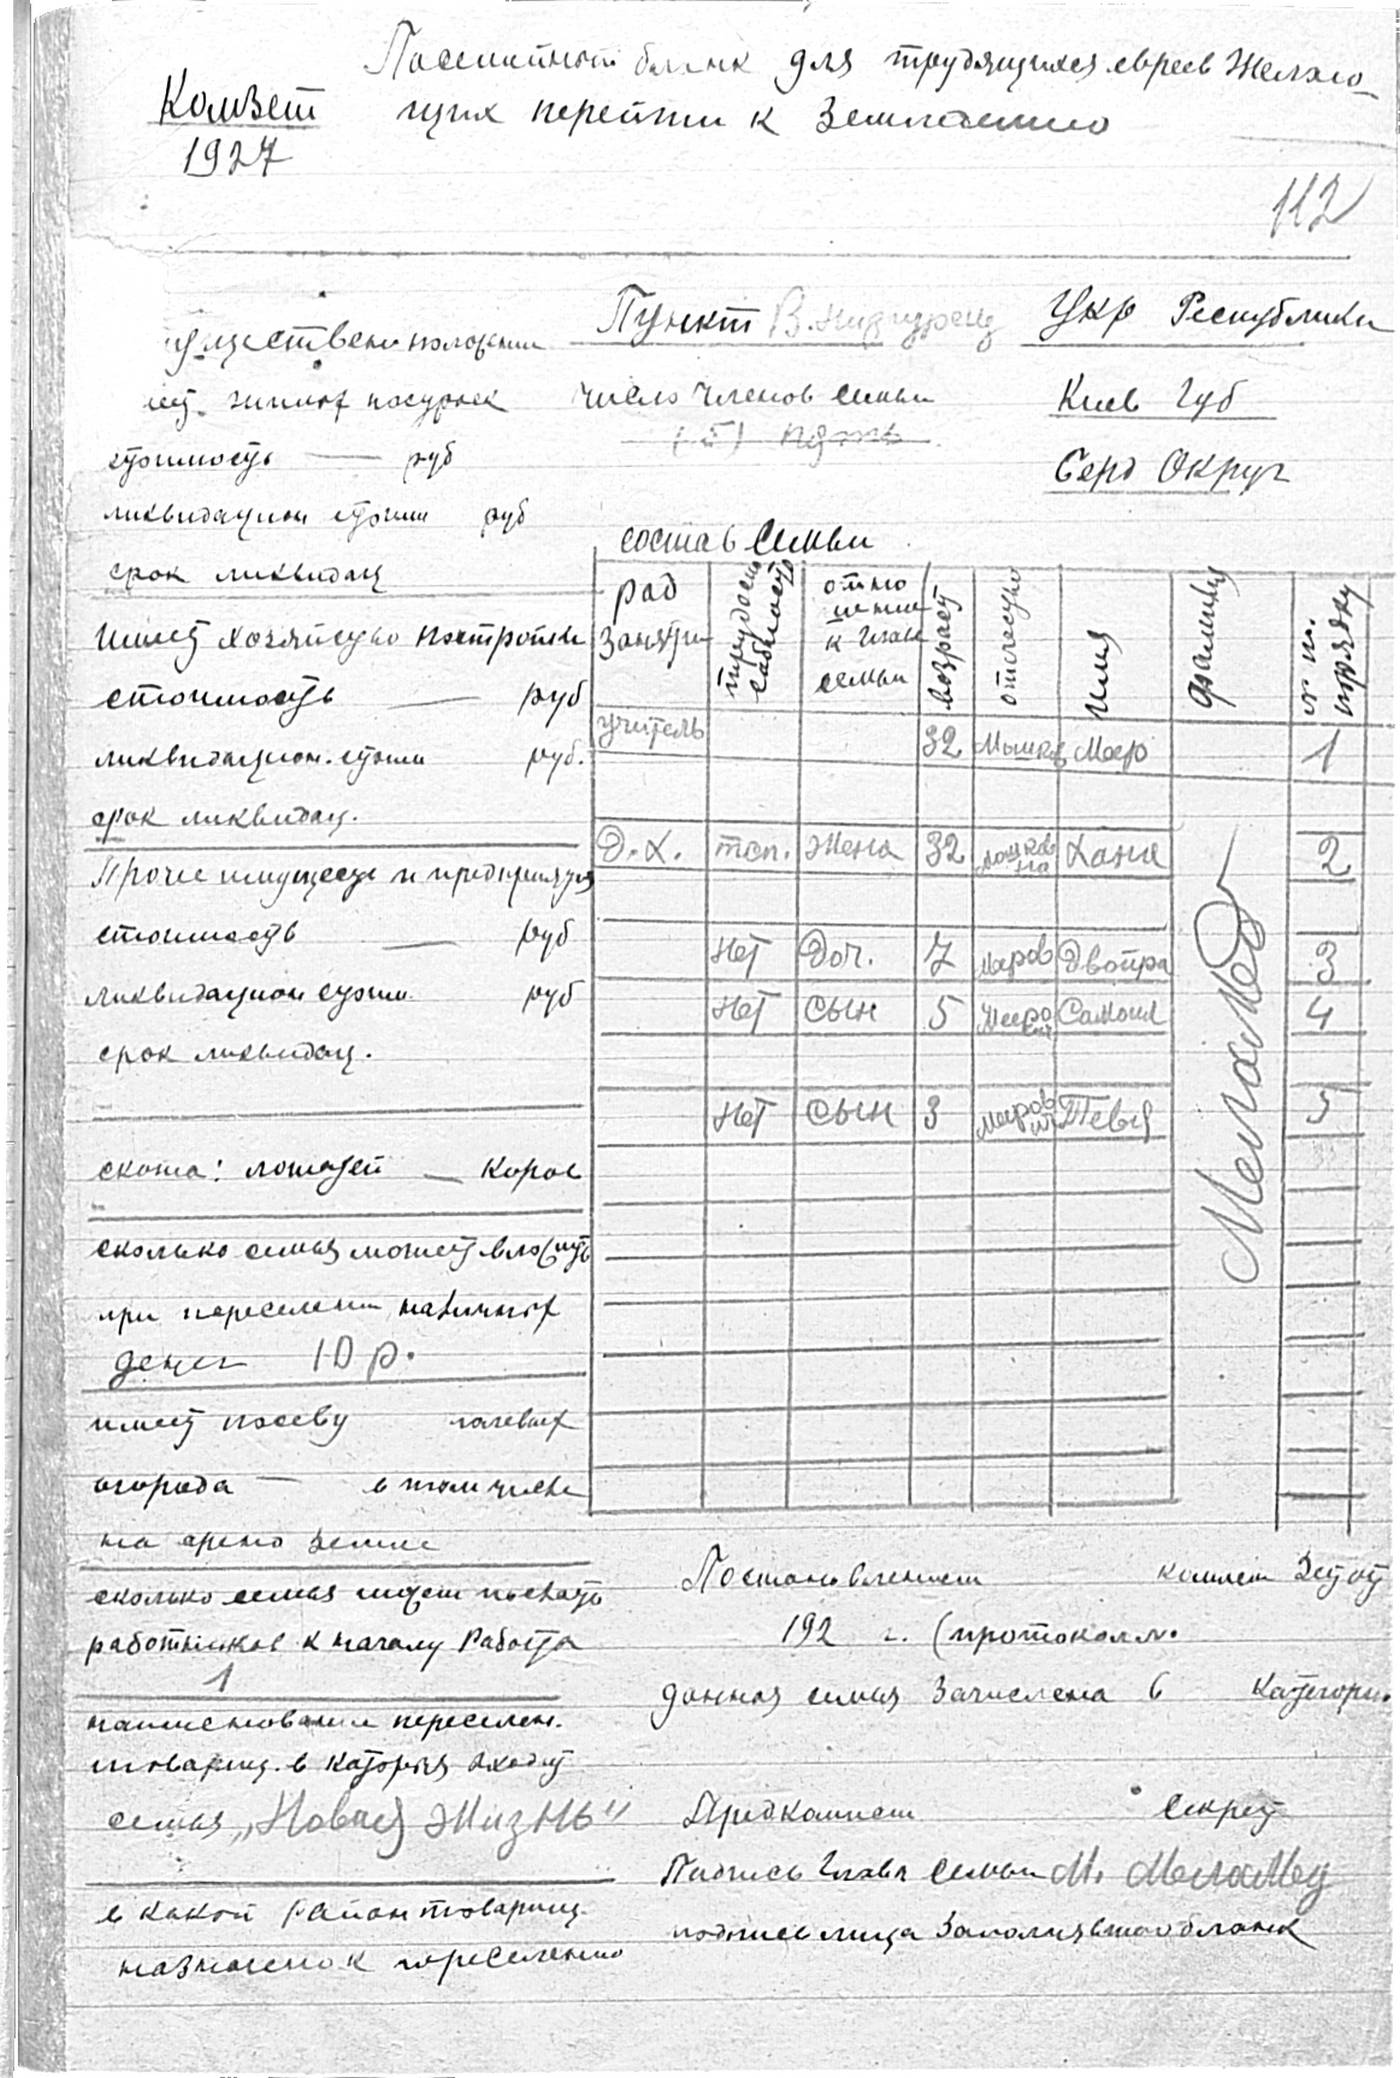 Посемейный бланк для трудящихся евреев желаю-
щих перейти к
Комзет
1927
112
Пункт
Укр Республики
Киев Губ
Округ
число членов семьи
(5) пять
имуществен положении
посурнек
стоимость — руб
ликвидацион стоим руб
срок ликвидац
имеет хозяйство постройки
стоимость — руб
ликвидацион. стоим руб.
срок ликвидац.
Прочее имущество и предприятия
стоимость — руб
ликвидацион стоим. руб
срок ликвидац.
скота: лошадей — коров
сколько семья может вложить
при переселении наличных
денег 10 р.
имеет посеву полевых
огорода — в том числе
на арено земле
сколько семья может послать
работников к началу Работа
1
наименование переселен.
товарищ. в которыя входит
семья „Новая жизнь"
в какой Район товарищ.
назначено к переселению
состав семьи
род занятия трудоспособность отношение к главе семьи возраст отчество имя фамилия № по порядку
учитель 32 Меер 1
Д.Х. тсп. жена 32 Хана 2
Нет Доч. 7 Меров Двойра 3
Нет сын 5 Самоил 4
Нет сын 3 Меерович Тевья 5
Меламед
Постановлением комзет
192 г. (протокол №.
данная семья зачислена в категори.
Предкомзет Секрет
Подпись Главы семьи М. Меламед
подпись лица заполнявшего бланк